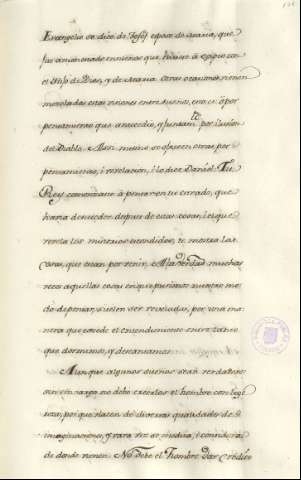 Evangelio se dice de Josef esposo de Maria, que
fue amonestado en sueños que huiese à Egipto con
el Hijo de Dios, y de Maria. Otras ocasiones vienen
mezcladas estas visiones entre sueños, como es ò por
pensamientos que antecedio, y juntamte por ilusion
del Diablo. Assi mismo se ofrecen otras por
pensamientos, i revelacion, i lo dice Daniel: Tu
Rey comenzaste à pensar en tu estrado, que
havia de suceder despues de estas cosas; i el que
revela los misterios escondidos, te mostrò las
cosas, que eran por venir. Mas verdad muchas
veces aquellas cosas en que pusimos nuestro mo-
do de pensar, suelen ser reveladas, por una ma-
nera que excede el entendimiento entre tanto
que dormimos, y descansamos.
Aunque algunos sueños sean verdaderos
sin embargo no debe creerlos el hombre con lige-
reza, porque nacen de diversas qualidades de
imaginaciones, y rara vez se medita, i considera
de donde vienen. No debe el hombre dar credito